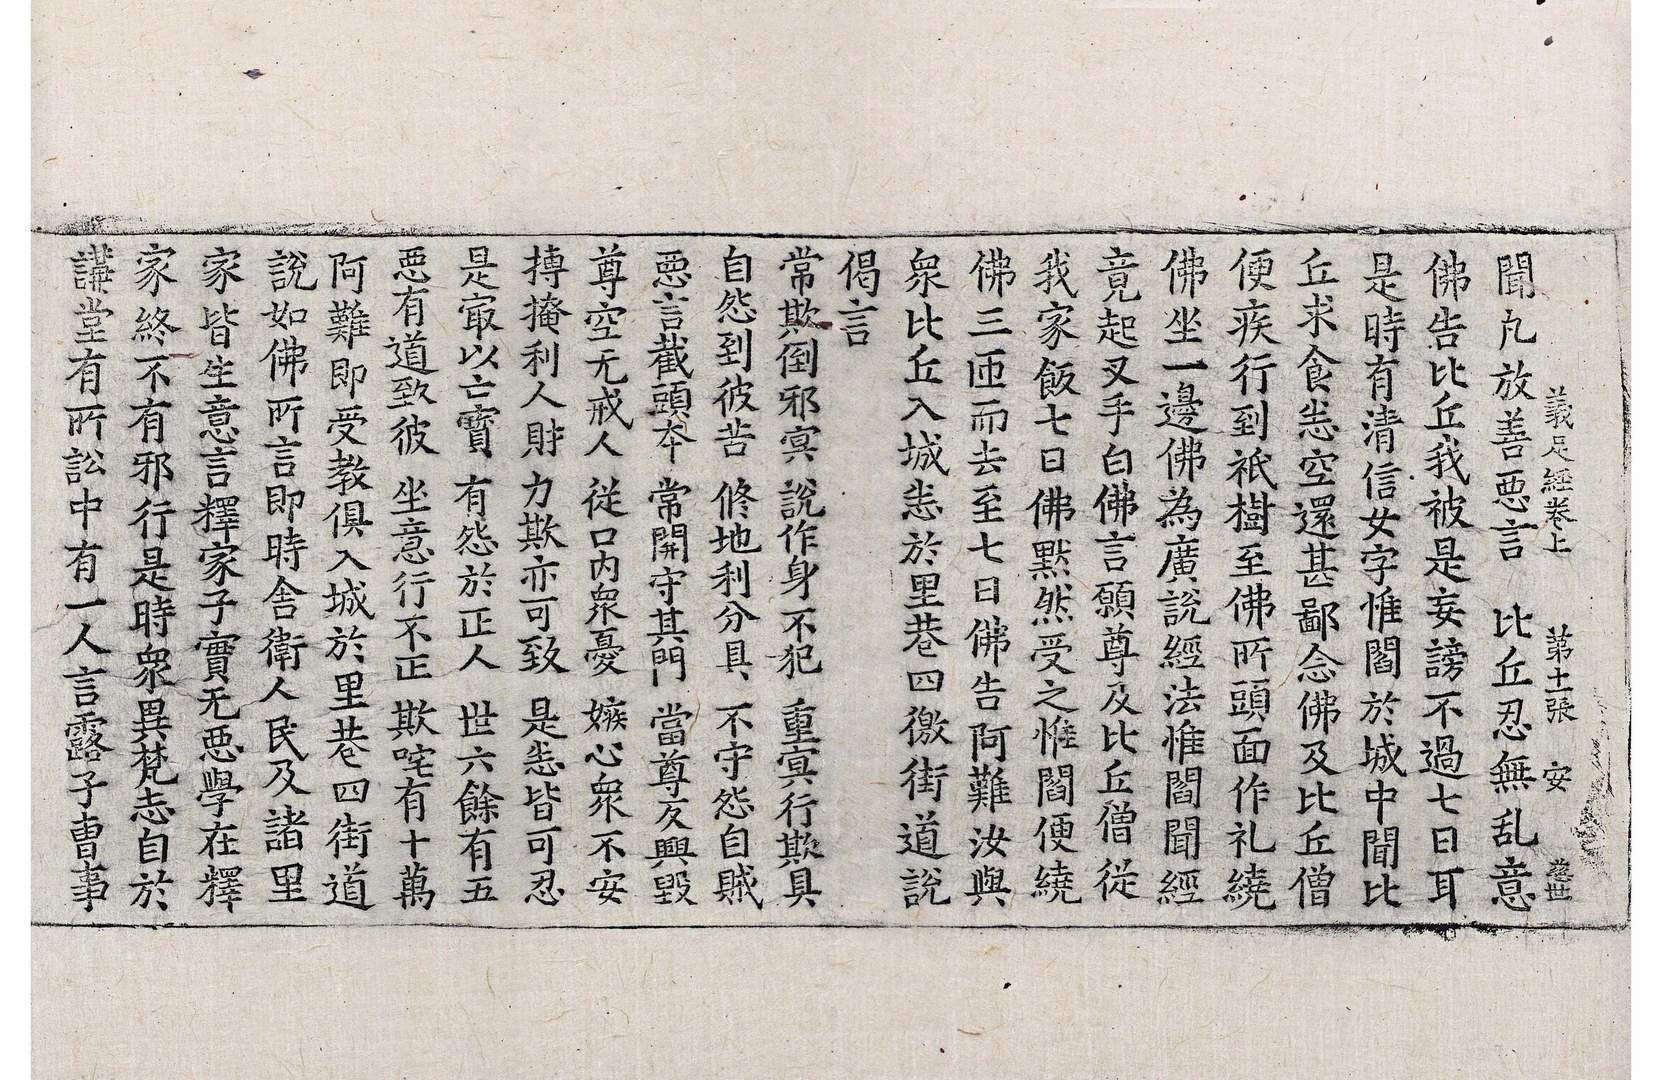 義足經卷上 第十二張 安
聞凡放善惡言 比丘忍無乱意
佛告比丘我被是妄謗不過七日耳
是時有清信女字惟閻於城中聞比
丘求食悉空還甚鄙念佛及比丘僧
便疾行到祇樹至佛所頭面作礼繞
佛坐一邊佛為廣說經法惟閻聞經
竟起叉手白佛言願尊及比丘僧從
我家飯七日佛默然受之惟閻便繞
佛三匝而去至七日佛告阿難汝與
衆比丘入城悉於里巷四徼街道說
偈言
常欺倒邪冥 說作身不犯 重冥行欺具
自怨到彼苦 修地利分具 不守怨自賊
惡言截頭本 常開守其門 當尊反興毀
尊空无戒人 從口内衆憂 嫉心衆不安
摶掩利人財 力欺亦可致 是悉皆可忍
是冣以亡寶 有怨於正人 世六餘有五
惡有道致彼 坐意行不正 欺咤有十萬
阿難即受教俱入城於里巷四街道
說如佛所言即時舍衛人民及諸里
家皆生意言釋家子實无惡學在釋
家終不有邪行是時衆異梵志自於
講堂有所訟中有一人言露子曹事